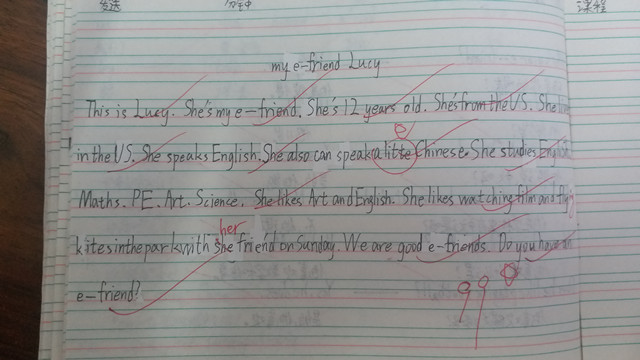 课程
my e-friend Lucy
This is Lucy. She's my e-friend. She's 12 years old. She's from the US. She
in the US. She speaks English. She also can speak a litte Chinese. She studies English.
e
Maths. PE. Art. Science. She likes Art and English. She likes watching film and fly
her
kites in the park with she friend on Sunday. We are good e-friends. Do you have an
e-friend?
99